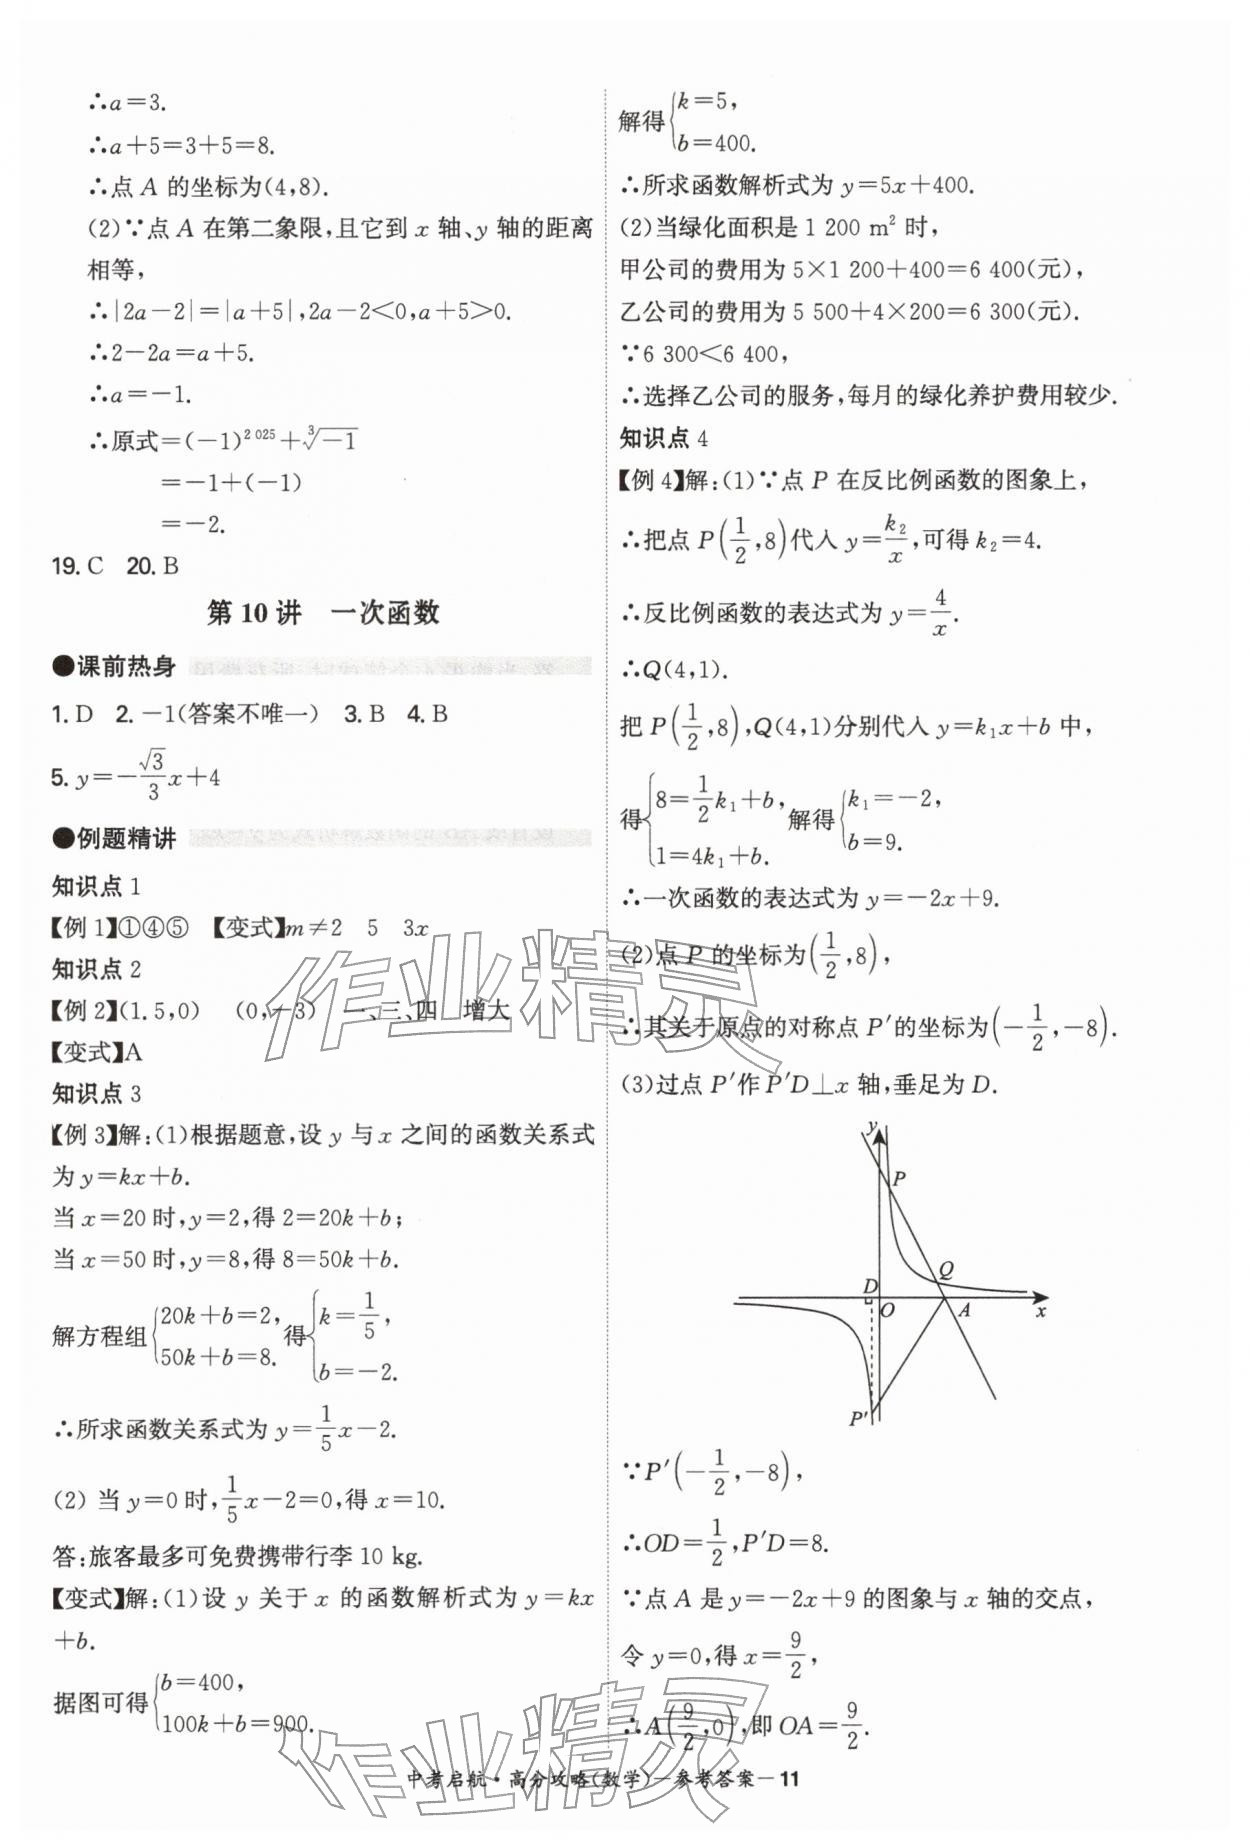 ∴a=3.
∴a+5=3+5=8.
∴点 A 的坐标为(4,8).
(2)∵点 A 在第二象限,且它到 x 轴、y 轴的距离
相等,
∴|2a-2|=|a+5|,2a-2<0,a+5>0.
∴2-2a=a+5.
∴a=-1.
∴原式=(-1)^{2 025}+\sqrt[3]{-1}
=-1+(-1)
=-2.
19. C 20. B
第 10 讲 一次函数
●课前热身
1. D 2. -1(答案不唯一) 3. B 4. B
5. y=-\frac{\sqrt{3}}{3}x+4
●例题精讲
知识点 1
【例 1】①④⑤ 【变式】m≠2 5 3x
知识点 2
【例 2】(1.5,0) (0,-3) 一、三、四 增大
【变式】A
知识点 3
【例 3】解:(1)根据题意,设 y 与 x 之间的函数关系式
为 y=kx+b.
当 x=20 时,y=2,得 2=20k+b;
当 x=50 时,y=8,得 8=50k+b.
解方程组{20k+b=2, 50k+b=8. 得{k=\frac{1}{5}, b=-2.
∴所求函数关系式为 y=\frac{1}{5}x-2.
(2) 当 y=0 时,\frac{1}{5}x-2=0,得 x=10.
答:旅客最多可免费携带行李 10 kg.
【变式】解:(1)设 y 关于 x 的函数解析式为 y=kx
+b.
据图可得{b=400, 100k+b=900.
解得{k=5, b=400.
∴所求函数解析式为 y=5x+400.
(2)当绿化面积是 1 200 m² 时,
甲公司的费用为 5×1 200+400=6 400(元),
乙公司的费用为 5 500+4×200=6 300(元).
∵6 300<6 400,
∴选择乙公司的服务,每月的绿化养护费用较少.
知识点 4
【例 4】解:(1)∵点 P 在反比例函数的图象上,
∴把点 P(\frac{1}{2},8)代入 y=\frac{k₂}{x},可得 k₂=4.
∴反比例函数的表达式为 y=\frac{4}{x}.
∴Q(4,1).
把 P(\frac{1}{2},8),Q(4,1)分别代入 y=k₁x+b 中,
得{8=\frac{1}{2}k₁+b, 1=4k₁+b. 解得{k₁=-2, b=9.
∴一次函数的表达式为 y=-2x+9.
(2)点 P 的坐标为(\frac{1}{2},8),
∴其关于原点的对称点 P′的坐标为(-\frac{1}{2},-8).
(3)过点 P′作 P′D⊥x 轴,垂足为 D.
y
P
Q
D
O
A
x
P′
∵P′(-\frac{1}{2},-8),
∴OD=\frac{1}{2},P′D=8.
∵点 A 是 y=-2x+9 的图象与 x 轴的交点,
令 y=0,得 x=\frac{9}{2},
∴A(\frac{9}{2},0),即 OA=\frac{9}{2}.
中考启航·高分攻略(数学)—参考答案—11
作业精灵
作业精灵